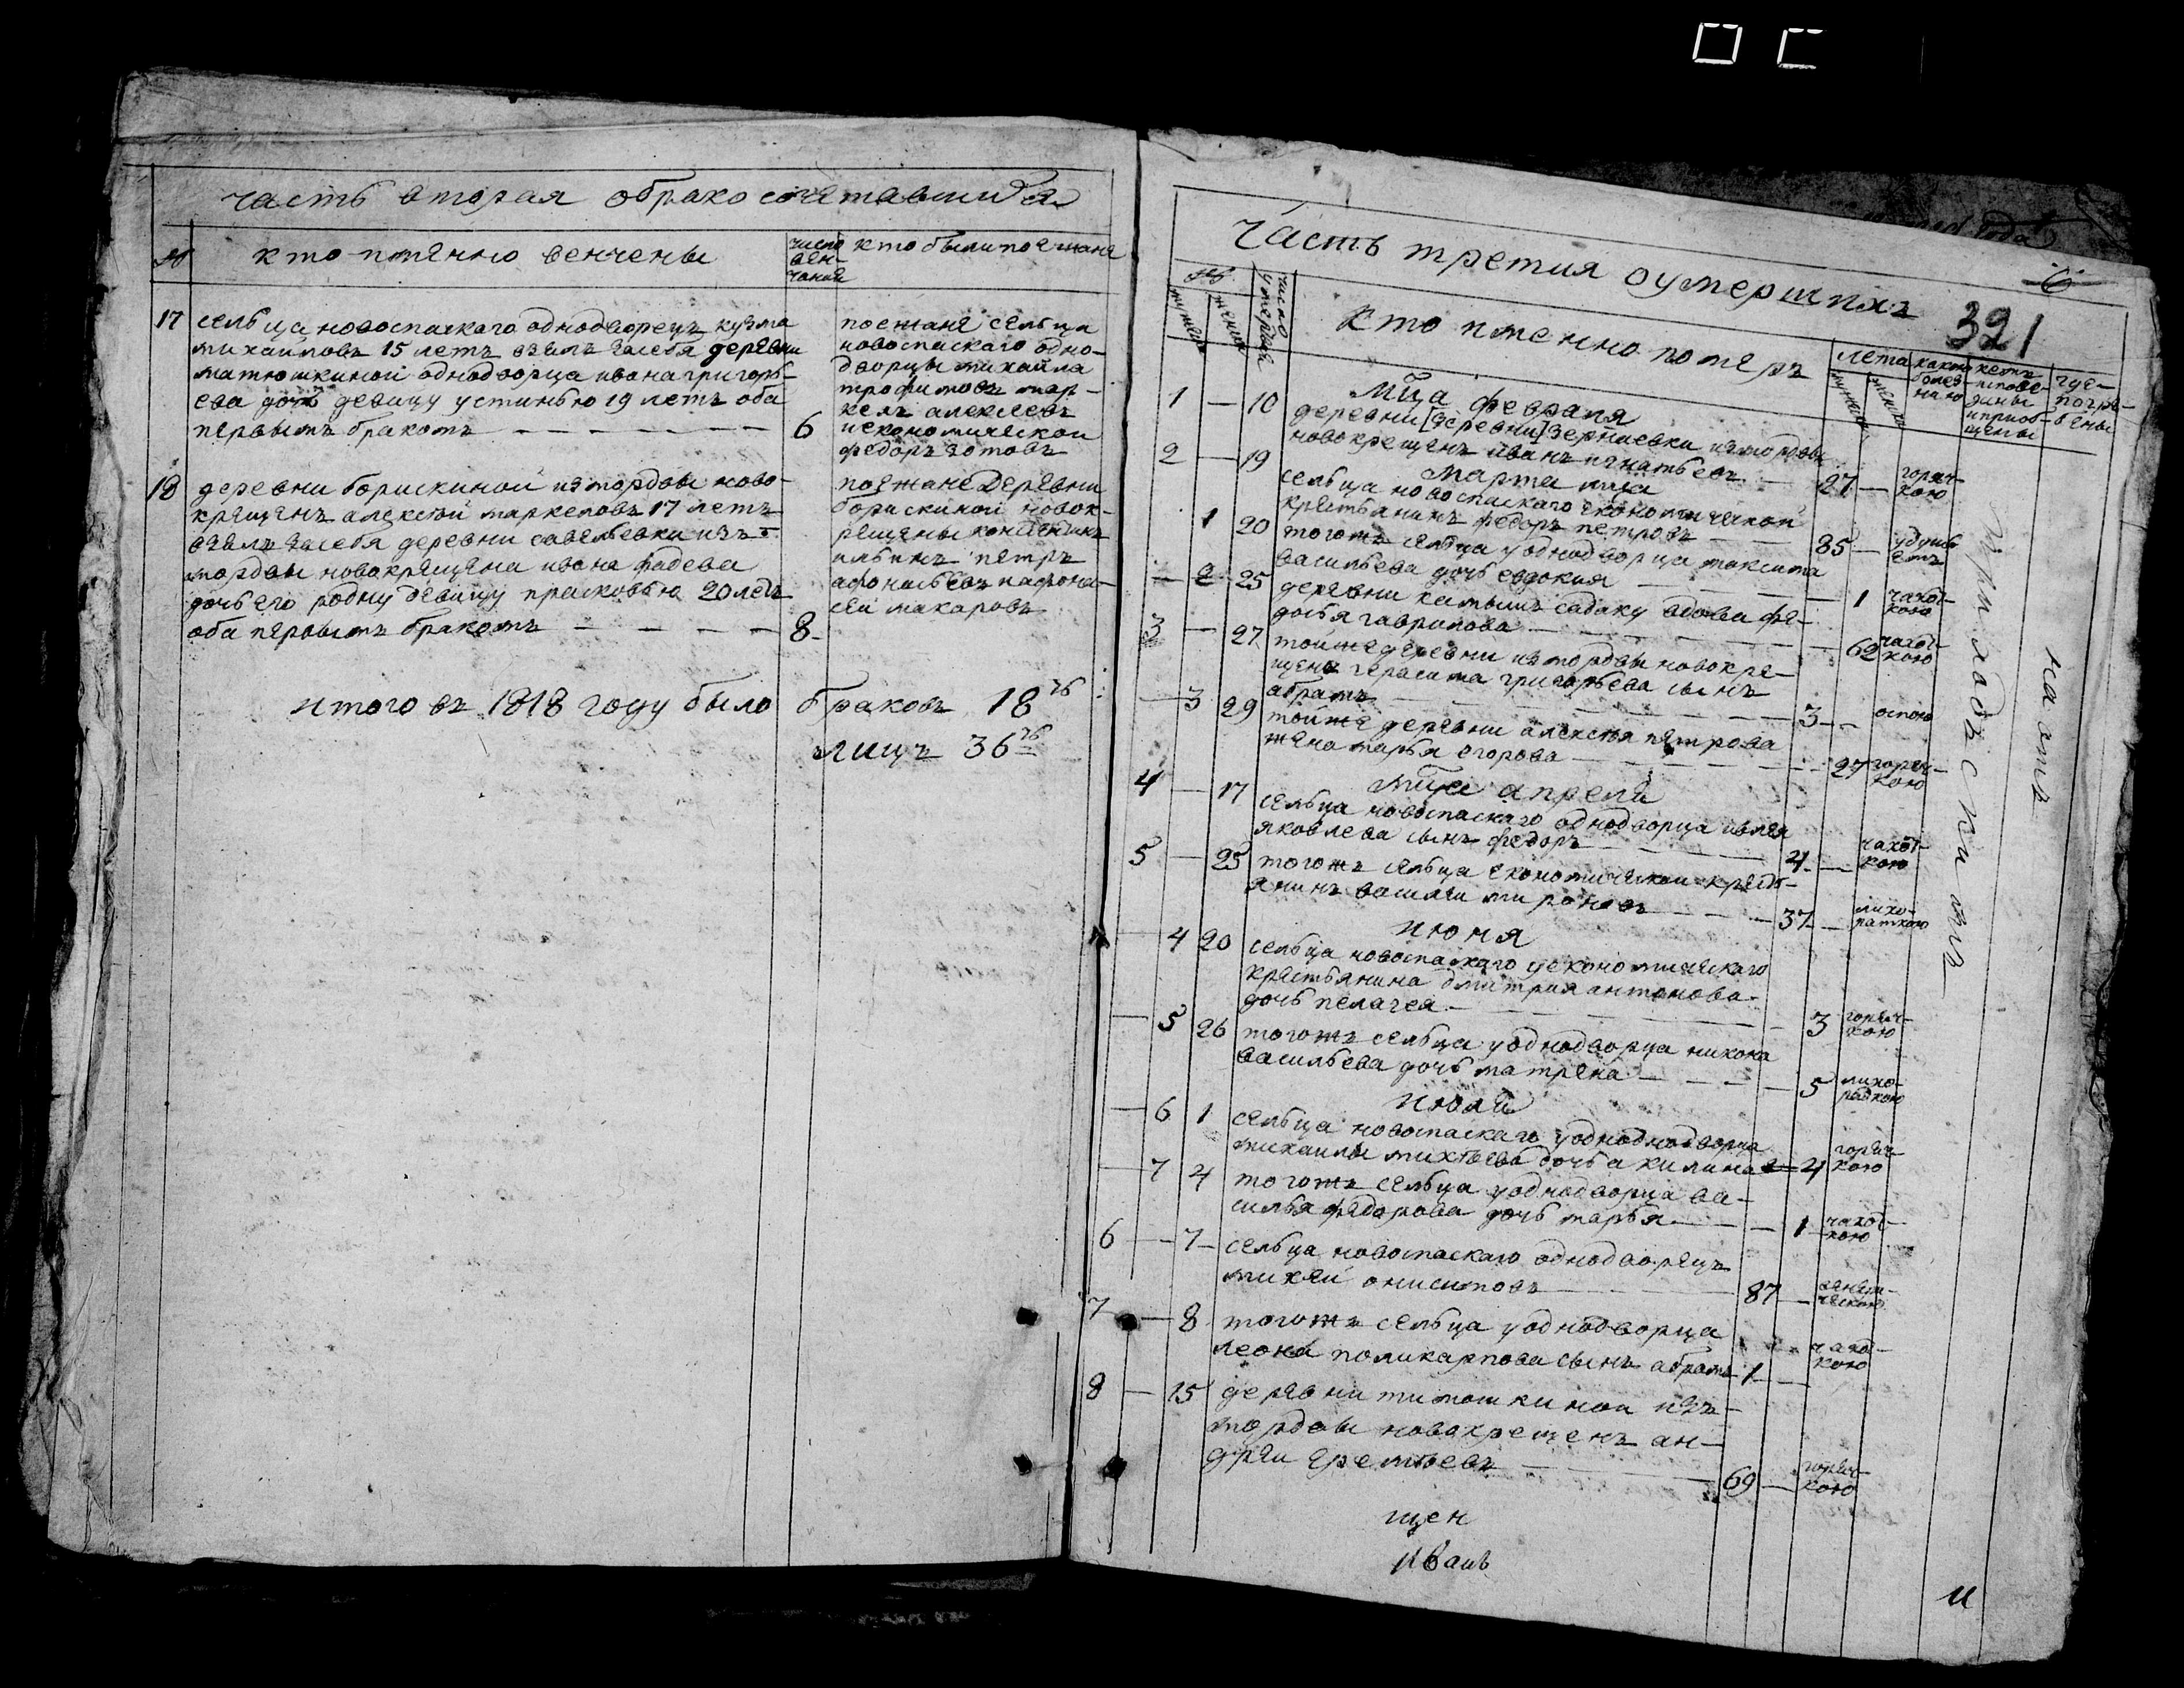 часть вторая обракосочетавшихся
№
кто имянно венчены
число вен-
чания
кто были поезжаня
17
сельца новоспаскаго однодворецъ кузма
михайловъ 15 летъ взялъ засебя деревни
матюшкиной однодворца ивана григорь-
ева дочь девицу устинью 19 летъ оба
первымъ бракомъ
6
поезжаня сельца
новоспаскаго одно-
дворцы михайла
трофимовъ мар-
келъ алексеевъ
иекономической
федоръ зотовъ
18
деревни борискиной измордвы ново-
крещенъ алексей маркеловъ 17 летъ
взялъ засебя деревни савельевки изъ
мордвы новокрещена ивана фадеева
дочь его родну девицу прасковью 20 летъ
оба первымъ бракомъ
8
поезжане деревни
борискиной новок-
рещены
ильинъ петръ
афонасьевъ иафона-
сей макаровъ
итого въ 1818 году было браковъ 18
лицъ 36
часть третия оумершихъ
6
321
№
мужеск
женск
число
умерших
кто имянно померъ
лета
мужеск
женск
какою
болез-
нию
кемъ
испове-
даны
иприоб-
щены
где-
погре-
бены
мца февраля
1 — 10 деревни [деревни] зерклеевки измордвы
новокрещенъ иванъ игнатьевъ — 27 — горяч-
кою
марта мца
2 — 19 сельца новоспаскаго економической
крестьянинъ федоръ петровъ 85 — удушь
емъ
1 20 тогожъ сельца уоднодворца максима
васильева дочь евдокия — 1 чахот-
кою
— 2 25 деревни камышъ садаку вдова фе-
досья гаврилова — 62 чахот-
кою
3 — 27 тойже деревни измордвы новокре-
щена герасима григорьева сынъ
абрамъ 3 — оспою
— 3 29 тойже деревни алексея петрова
жена марья егорова 27 горяч-
кою
мца апреля
4 — 17 сельца новоспаскаго однодворца
яковлева сынъ федоръ 4 — чахот-
кою
5 — 25 тогожъ сельца економической кресть-
янинъ василей мироновъ — 37 — лихо-
раткою
июня
— 4 20 сельца новоспаскаго уекономическаго
крестьянина дмитрия антонова
дочь пелагея — 3 горяч-
кою
— 5 26 тогожъ сельца уоднодворца никона
васильева дочь матрена — 5 лихо-
радкою
июля
— 6 1 сельца новоспаскаго уоднодворца
михаилы михеева дочь акилина 4 горяч-
кою
— 7 4 тогожъ сельца уоднодворца ва-
силья федорова дочь марья — 1 чахот-
кою
6 — 7 сельца новоспаскаго однодворецъ
михей онисимовъ 87 —
7 — 8 тогожъ сельца уоднодворца
леона поликарпова сынъ абрамъ 1 — чахот-
кою
8 — 15 деревни тимошкиной изъ-
мордвы новокрещенъ ан-
дрей еремеевъ — 69 — горяч-
кою
приходскимъ
щен
иванъ
и